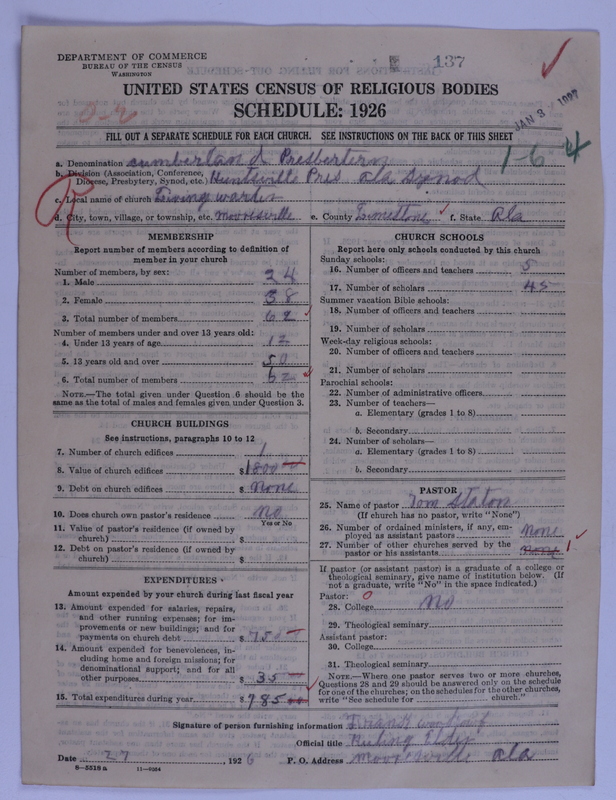 DEPARTMENT OF COMMERCE
BUREAU OF THE CENSUS
WASHINGTON
137
UNITED STATES CENSUS OF RELIGIOUS BODIES
SCHEDULE: 1926
JAN 3 1927
2-2
FILL OUT A SEPARATE SCHEDULE FOR EACH CHURCH. SEE INSTRUCTIONS ON THE BACK OF THIS SHEET
1-6 4
a. Denomination Cumberland Presbertern
b. Division (Association, Conference, Diocese, Presbytery, Synod, etc.) Huntsville Pres Ala Synod
c. Local name of church Living
d. City, town, village, or township, etc. Mooresville e. County Limestone f. State Ala
R
MEMBERSHIP
Report number of members according to definition of
member in your church
Number of members, by sex:
1. Male 24
2. Female 38
3. Total number of members 62
Number of members under and over 13 years old:
4. Under 13 years of age 12
5. 13 years old and over 50
6. Total number of members 62
NOTE.—The total given under Question 6 should be the
same as the total of males and females given under Question 3.
CHURCH BUILDINGS
See instructions, paragraphs 10 to 12
7. Number of church edifices 1
8. Value of church edifices $1800
9. Debt on church edifices $ None
10. Does church own pastor's residence No
Yes or No
11. Value of pastor's residence (if owned by
church) $
12. Debt on pastor's residence (if owned by
church) $
EXPENDITURES
Amount expended by your church during last fiscal year
13. Amount expended for salaries, repairs,
and other running expenses; for im-
provements or new buildings; and for
payments on church debt $ 750
14. Amount expended for benevolences, in-
cluding home and foreign missions; for
denominational support; and for all
other purposes $ 35
15. Total expenditures during year $ 785
CHURCH SCHOOLS
Report here only schools conducted by this church
Sunday schools:
16. Number of officers and teachers 5
17. Number of scholars 45
Summer vacation Bible schools:
18. Number of officers and teachers
19. Number of scholars
Week-day religious schools:
20. Number of officers and teachers
21. Number of scholars
Parochial schools:
22. Number of administrative officers
23. Number of teachers—
a. Elementary (grades 1 to 8)
b. Secondary
24. Number of scholars—
a. Elementary (grades 1 to 8)
b. Secondary
PASTOR
25. Name of pastor Tom Staton
(If church has no pastor, write "None")
26. Number of ordained ministers, if any, em-
ployed as assistant pastors None
27. Number of other churches served by the
pastor or his assistants None 1
If pastor (or assistant pastor) is a graduate of a college or
theological seminary, give name of institution below. (If
not a graduate, write "No" in the space indicated.)
Pastor: 0
28. College No
29. Theological seminary
Assistant pastor:
30. College
31. Theological seminary
NOTE.—Where one pastor serves two or more churches,
Questions 28 and 29 should be answered only on the schedule
for one of the churches; on the schedules for the other churches,
write "See schedule for church."
Signature of person furnishing information
Official title Ruling Elder
Date 27, 1926 P. O. Address Mooresville Ala
8-5518a 11-9284